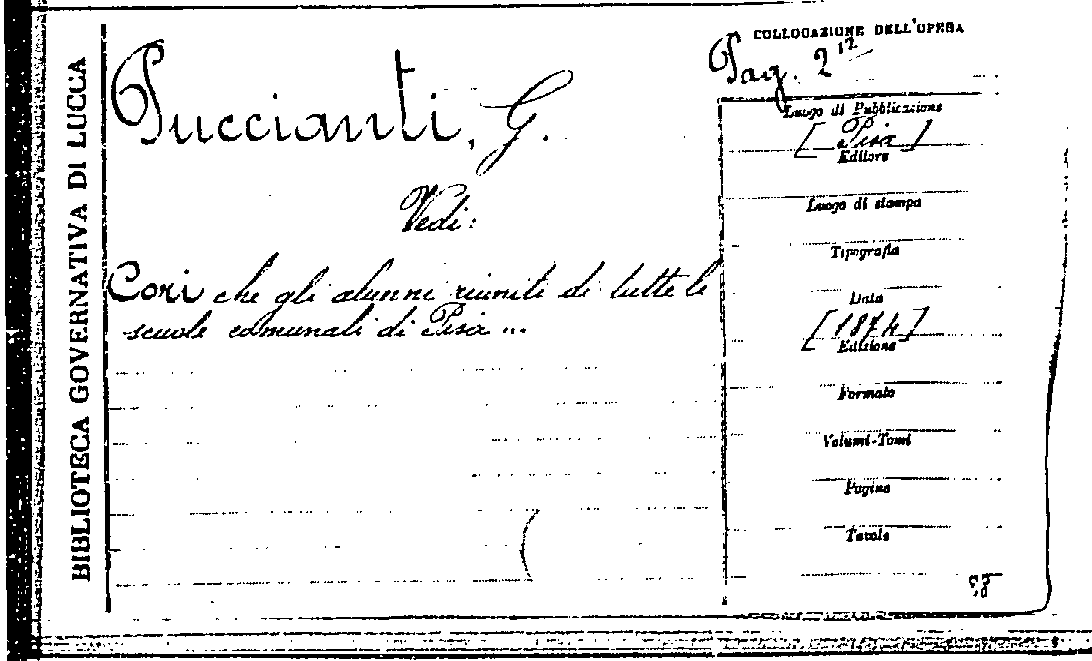 BIBLIOTECA GOVERNATIVA DI LUCCA
Puccianti, G.
Vedi:
Cori che gli alunni riuniti di tutte le
scuole comunali di Pisa ...
COLLOCAZIONE DELL'OPERA
Pag. 2 12
Luogo di Pubblicazione
[Pisa]
Editore
Luogo di stampa
Tipografia
Data
[1874]
Edizione
Formato
Volumi-Tomi
Pagine
Tavole